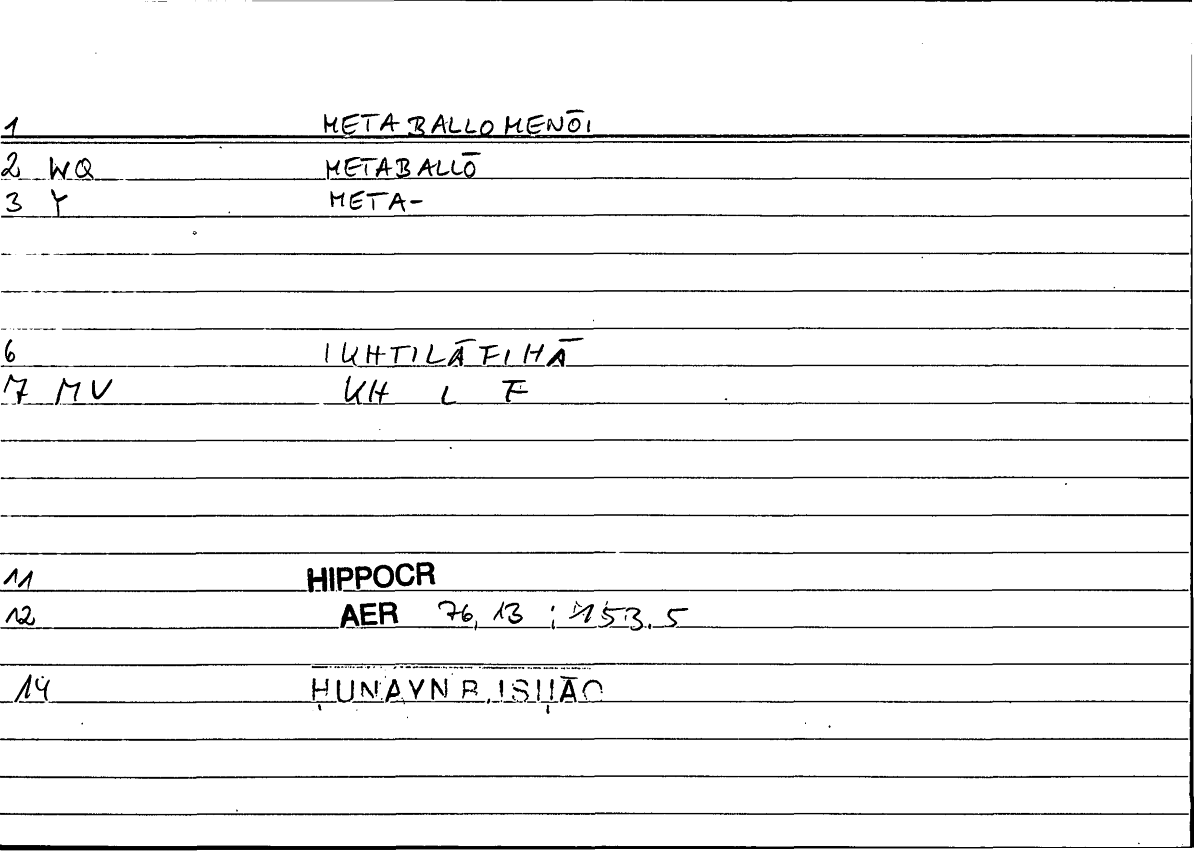 1 METABALLOMENŌI
2 WQ METABALLŌ
3 Y META-
6 IKHTILĀFIHĀ
7 MV KH L F
11 HIPPOCR
12 AER 76, 13 ; 153. 5
14 ḤUNAYN B. ISḤĀQ